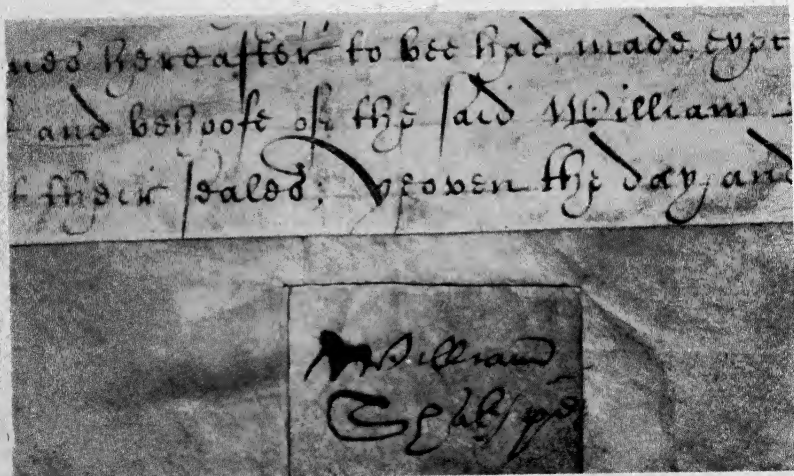 hereafter to bee had, made,
and behoofe of the said William
their seales, yeoven the day and
William
Shakspē